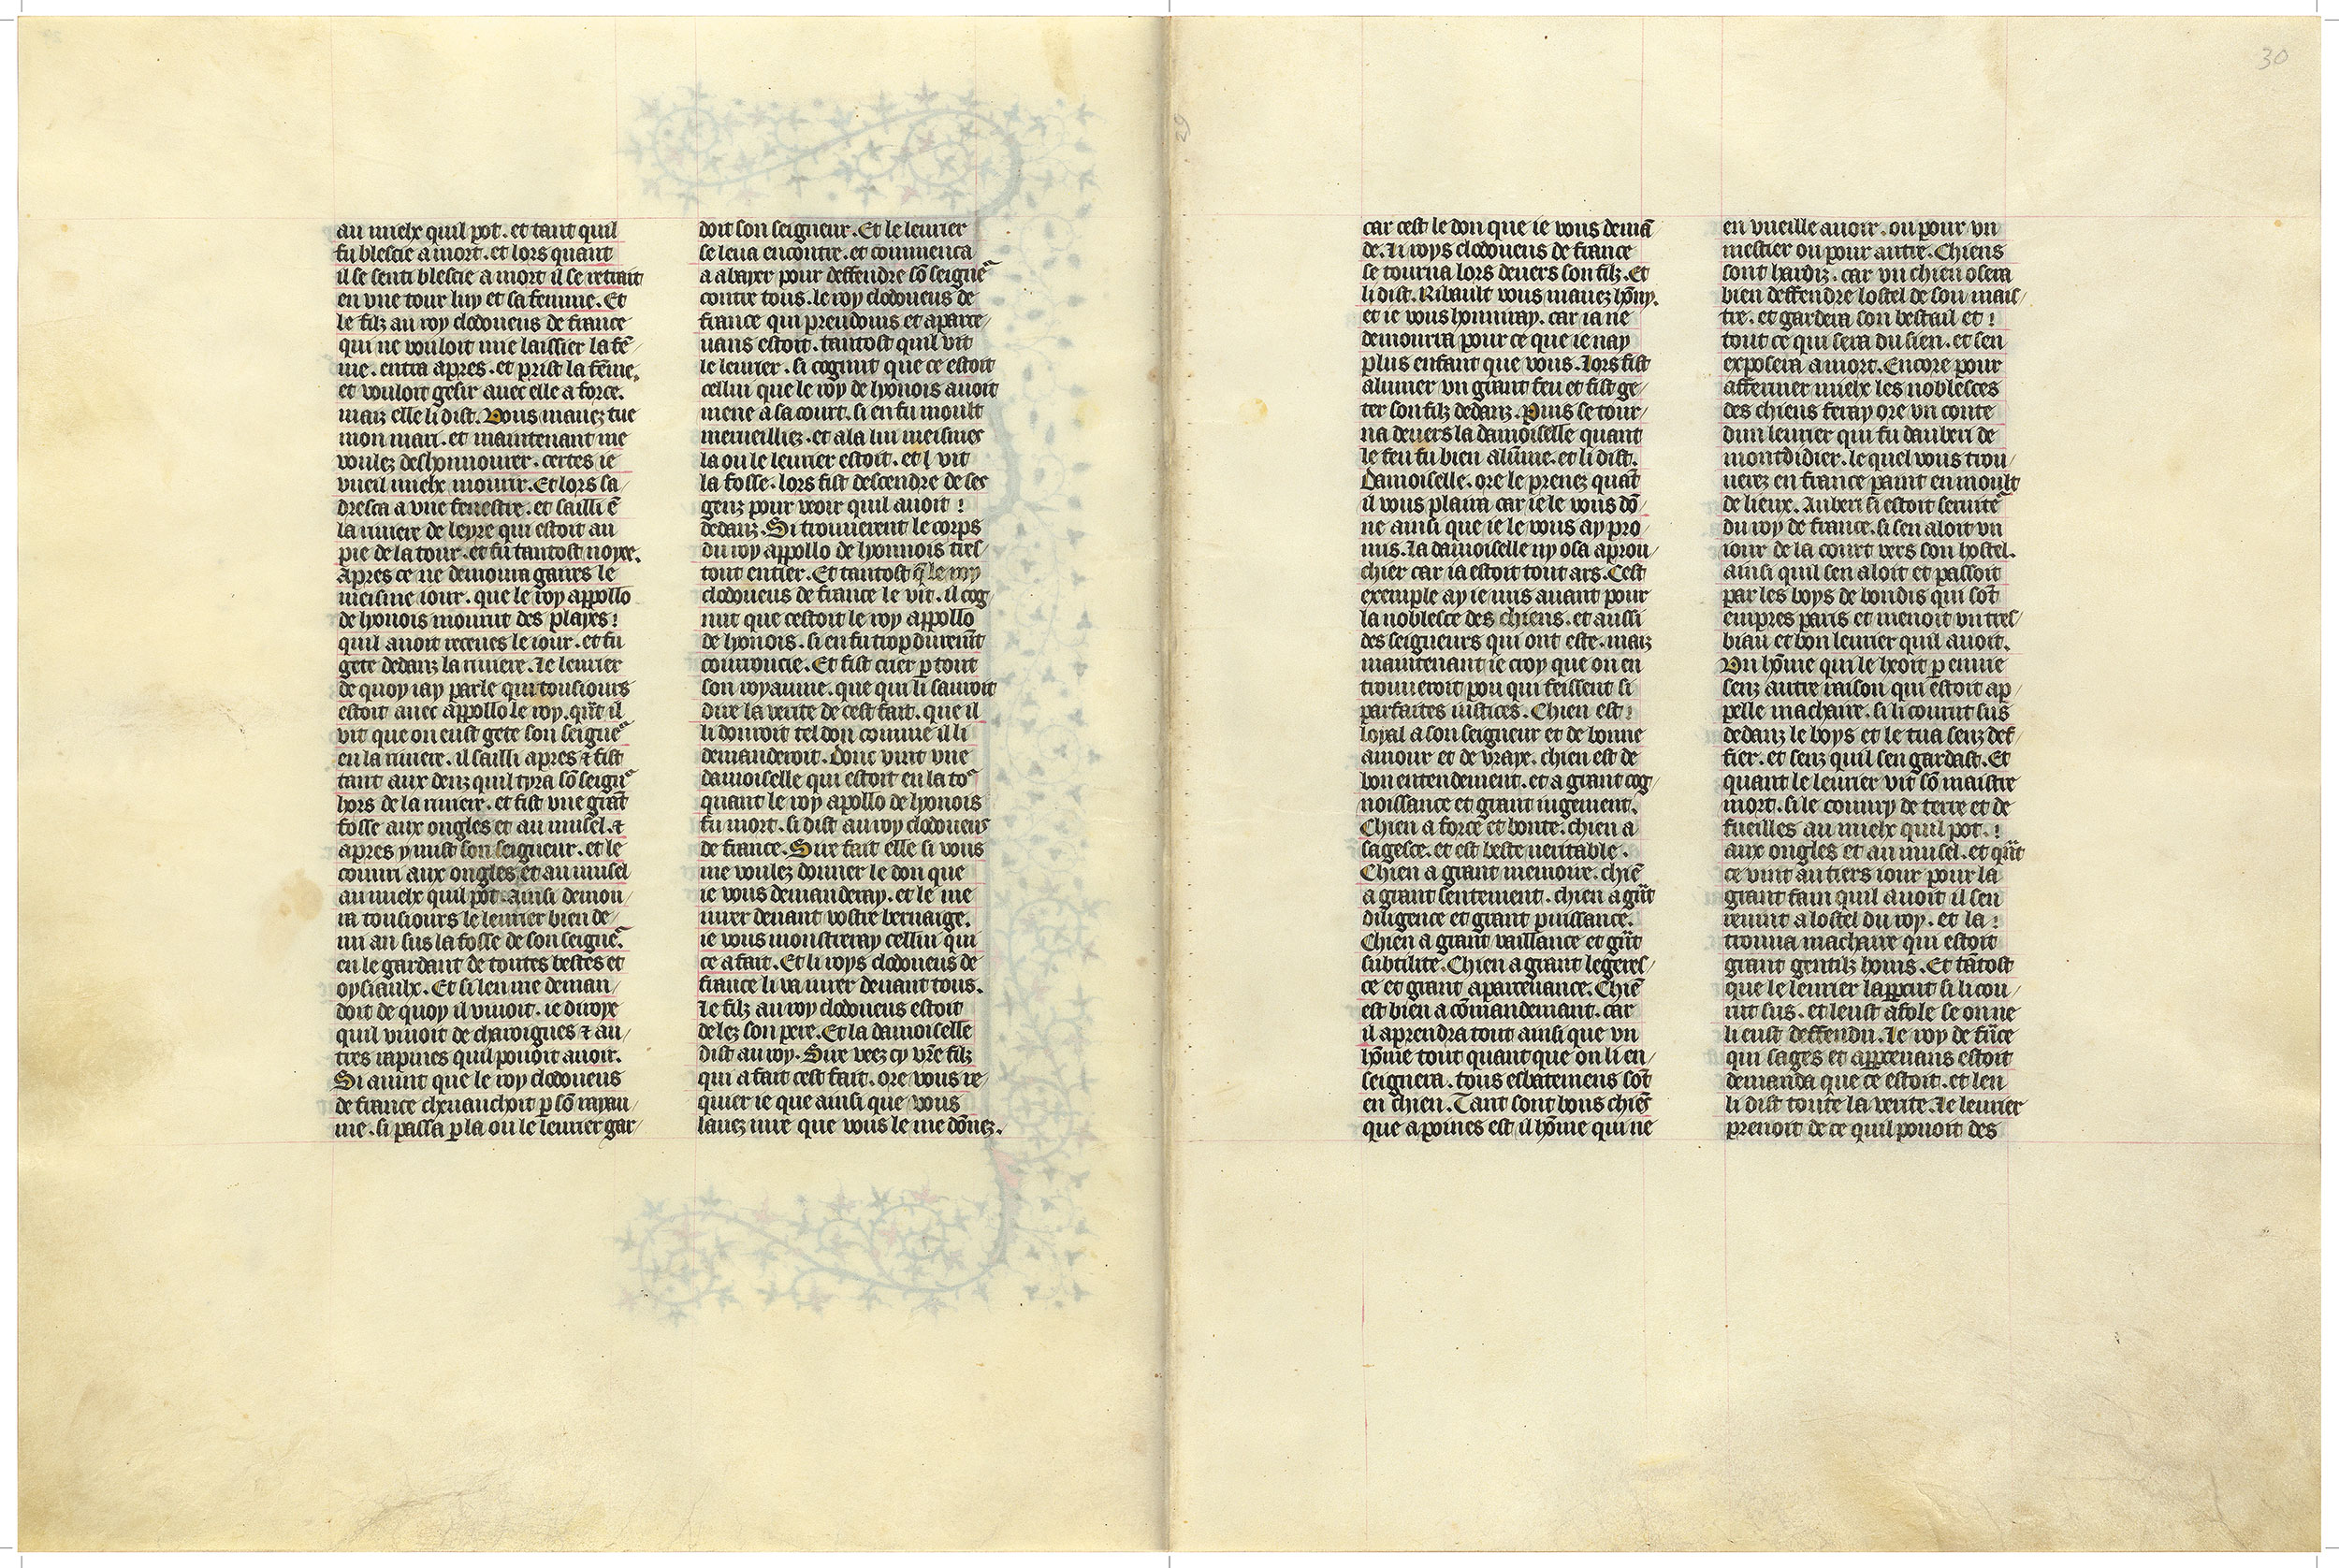 au mielx quil pot. et tant quil
fu blescie a mort. et lors quant
il se senti blescie a mort il se retrait
en vne tour luy et sa femme. Et
le filz au roy clodoueus de france
qui ne vouloit mie laissier la fẽ/
me. entra apres. et prist la fẽme.
et vouloit gesir auec elle a force.
maiz elle li dist. Vous mauez tue
mon mari. et maintenant me
voulez deshonnourer. certes ie
vueil mielx mourir. Et lors sa/
dresca a vne fenestre. et sailli ẽ
la riuiere de leyre qui estoit au
pie de la tour. et fu tantost noyee.
Apres ce ne demoura gaires le
meisme iour. que le roy appollo
de lyonois mourut des playes:
quil auoit receues le iour. et fu
gete dedanz la riuiere. Le leurier
de quoy iay parle qui tousiours
estoit auec appollo le roy. qũt il
vit que on eust gete son seigneˀ
en la riuiere. il sailli apres ⁊ fist
tant aux denz quil tyra sõ seignˀ
hors de la riuiere. et fist vne grãt
fosse aux ongles et au musel. ⁊
apres y mist son seigneur. et le
couuri aux ongles et au musel
au mielx quil pot. Ainsi demou/
ra tousiours le leurier bien de/
mi an sus la fosse de son seigneˀ.
en le gardant de toutes bestes et
oysiaulx. Et si len me deman/
doit de quoy il viuoit. ie diroye
quil viuoit de charoignes ⁊ au/
tres rapines quil pouoit auoir.
Si auint que le roy clodoueus
de france cheuauchoit p sõ royau/
me. si passa p la ou le leurier gar/
doit son seigneur. Et le leurier
se leua encontre. et commenca
a abayer pour deffendre sõ seigneˀ
contre tous. le roy clodoueus de
france qui preudoms et aparce/
uans estoit. tantost quil vit
le leurier. si cognut que ce estoit
cellui que le roy de lyonois auoit
mene a sa court. si en fu moult
merueilliez. et ala lui meismes
la ou le leurier estoit. et vit
la fosse. lors fist descendre de ses
genz pour veoir quil auoit :
dedanz. Si trouuerent le corps
du roy appollo de lyonnois tres/
tout entier. Et tantost q̃ le roy
clodoueus de france le vit. il cog/
nut que cestoit le roy appollo
de lyonois. si en fu trop duremẽt
courroucie. Et fist crier p tout
son royaume. que qui li sauroit
dire la verite de cest fait. que il
li donroit tel don comme il li
demanderoit. Donc vint vne
damoiselle qui estoit en la toˀ
quant le roy apollo de lyonois
fu mort. si dist au roy clodoueus
de france. Sire fait elle si vous
me voulez donner le don que
ie vous demanderay. et le me
iurer deuant vostre bernaige.
ie vous monstreray cellui qui
ce a fait. Et li roys clodoueus de
france li va iurer deuant tous.
Le filz au roy clodoueus estoit
delez son pere. Et la damoiselle
dist au roy. Sire veez cy vr̃e filz
qui a fait cest fait. ore vous re/
quier ie que ainsi que vous
lauez iure que vous le me dõnez.
29
30
car cest le don que ie vous demã
de. Li roys clodoueus de france
se tourna lors deuers son filz. Et
li dist. Ribault vous mauez hõny.
et ie vous honniray. car ia ne
demourra pour ce que ie nay
plus enfant que vous. Lors fist
alumer vn grant feu et fist ge/
ter son filz dedanz. Puis se tour/
na deuers la damoiselle quant
le feu fu bien alũme. et li dist.
Damoiselle. ore le prenez quãt
il vous plaira car ie le vous dõ/
ne ainsi que ie le vous ay pro
mis. La damoiselle ny osa aprou/
chier car ia estoit tout ars. Cest
exemple ay ie mis auant pour
la noblesce des chiens. et aussi
des seigneurs qui ont este. maiz
maintenant ie croy que on en
trouueroit pou qui feissent si
parfaites iustices. Chien est :
loyal a son seigneur et de bonne
amour et de vraye. chien est de
bon entendement. et a grant cog/
noissance et grant iugement.
Chien a force et bonte. chien a
sagesce. et est beste veritable.
Chien a grant memoire. chiẽ
a grant sentement. chien a gr̃t
diligence et grant puissance.
Chien a grant vaillance et gr̃t
subtilite. Chien a grant legeres/
ce et grant aparceuance. Chiẽ
est bien a cõmandemant. car
il aprendra tout ainsi que vn
hõme tout quant que on li en/
seignera. tous esbatemens sõt
en chien. Tant sont bons chiẽs
que a poines est il hõme qui ne
en vueille auoir. ou pour vn
mestier ou pour autre. Chiens
sont hardiz. car vn chien osera
bien deffendre lostel de son mais/
tre. et gardera son bestail et :
tout ce qui sera du sien. et sen
exposera a mort. Encore pour
affermer mielx les noblesces
des chiens feray ore vn conte
dun leurier qui fu dauberi de
montdidier. le quel vous trou/
uerez en france paint en moult
de lieux. Auberi si estoit seruiteˀ
du roy de france. si sen aloit vn
iour de la court vers son hostel.
ainsi quil sen aloit et passoit
par les boys de bondis qui sõt
empres paris et menoit vn tres/
biau et bon leurier quil auoit.
Vn hõme qui le heoit p enuie
senz autre raison qui estoit ap/
pelle machaire. si li courut sus
dedanz le boys et le tua senz def/
fier. et senz quil sen gardast. Et
quant le leurier vit sõ maistre
mort. si le couury de terre et de
fueilles au mielx quil pot. :
aux ongles et au musel. et qũt
ce vint au tiers iour pour la
grant fain quil auoit il sen
reuint a lostel du roy. et la :
trouua machaire qui estoit
grant gentilz homs. Et tãtost
que le leurier lapperceut si li cou/
rut sus. et leust afole se on ne
li eust deffendu. Le roy de frãce
qui sages et apperceuans estoit
demanda que ce estoit. et len
li dist toute la verite. Le leurier
prenoit de ce quil pouoit des